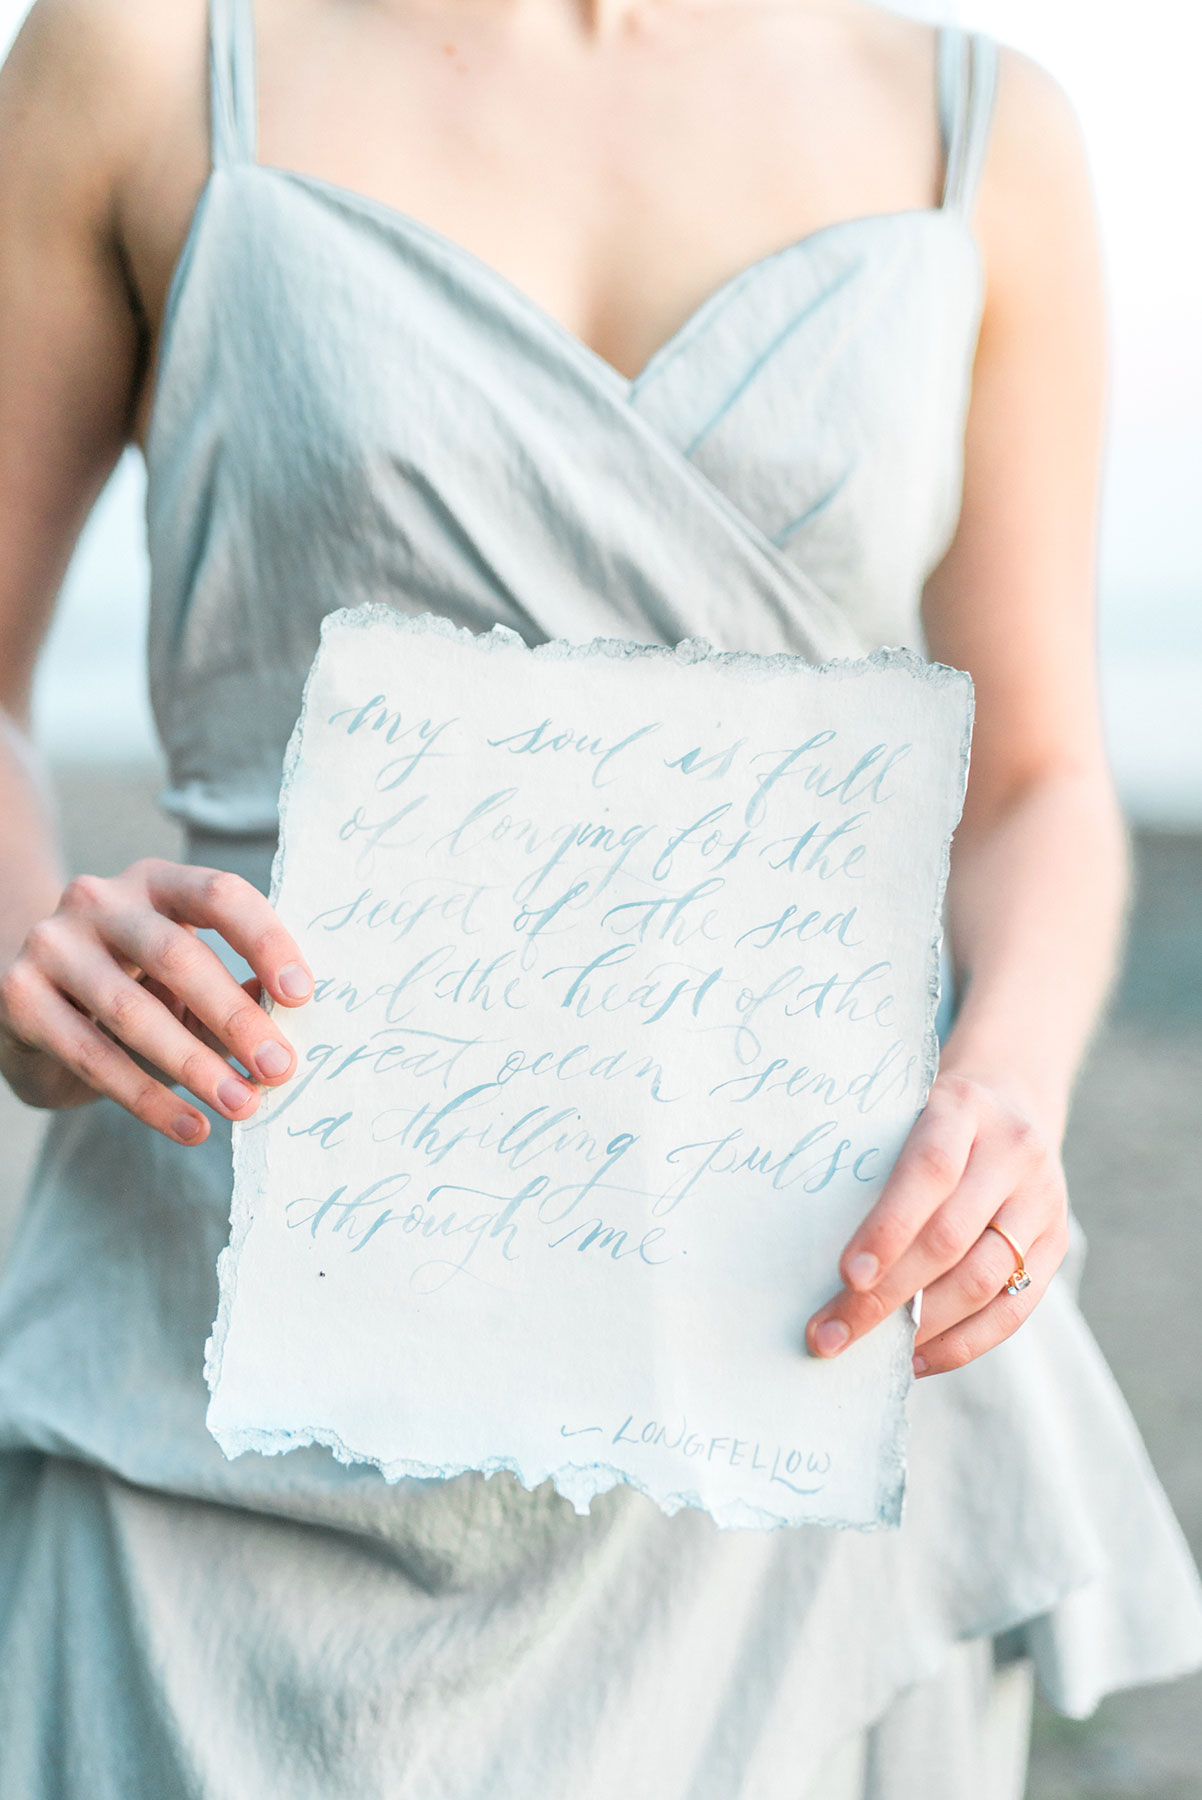 my soul is full
of longing for the
secret of the sea
and the heart of the
great ocean sends
a thrilling pulse
through me.
~ LONGFELLOW